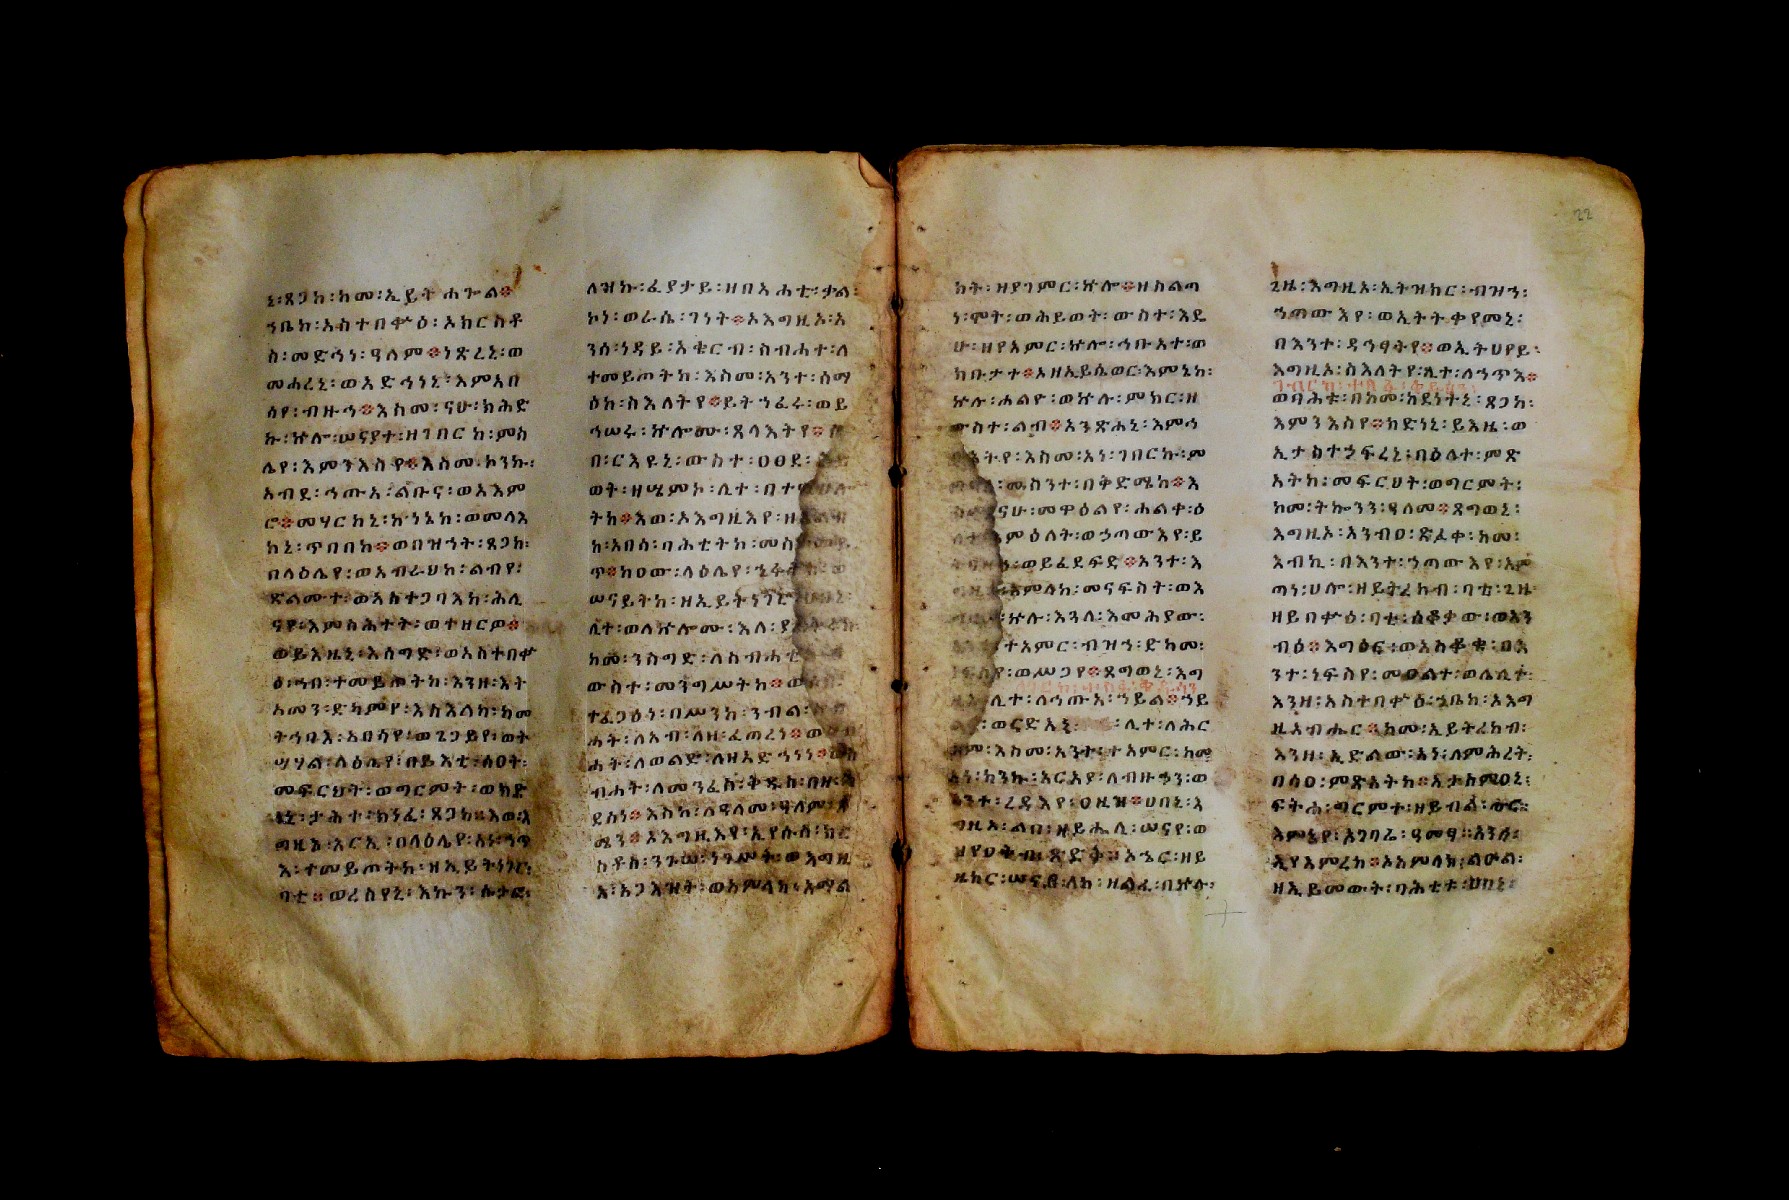 ኒ፡ጸጋከ፡ከመ፡ኢይትሐጐል፨
ኀቤከ፡አስተበቍዕ፡ኦክርስቶ
ስ፡መድኅነ፡ዓለም፨ነጽረኒ፡ወ
መሐረኒ፡ወአድኅነኒ፡እምአበ
ሳየ፡ብዙኅ፨እስመ፡ናሁ፡ክሕድ
ኩ፡ኵሎ፡ሠናያተ፡ዘገበርከ፡ምስ
ሌየ፡እምንእስየ፨እስመ፡ኮንኩ፡
አብደ፡ኀጡአ፡ልቡና፡ወአእም
ሮ፨መሃርከኒ፡ኵነኔከ፡ወመላእ
ከኒ፡ጥበበከ፨ወበዝኀት፡ጸጋከ፡
በላዕሌየ፡ወአብራህከ፡ልብየ፡
ጽልሙተ፡ወአስተጋባእከ፡ሕሊ
ናየ፡እምስሕተት፡ወተዘርዎ፨
ወይእዜኒ፡እሰግድ፡ወአስተበቍ
ዕ፡ኀበ፡ተመይጦትከ፡እንዘ፡እት
አመን፡ድካምየ፡እስእለከ፡ከመ
ትኅባእ፡አበሳየ፡ወጌጋይየ፡ወት
ሣሃል፡ላዕሌየ፡በይእቲ፡ሰዐት፡
መፍርህት፡ወግርምት፡ወክድ
ነኒ፡ታሕተ፡ክንፈ፡ጸጋከ፨እወ፡እ
ግዚእ፡እርኢ፡ዐላዕሌየ፡አነ፡ኃጥ
እ፡ተመይጦትከ፡ዘኢይትነገር፡
ባቲ፨ወረስየኒ፡እኩን፡ሱታፌ፡
ለዝኩ፡ፈያታይ፡ዘበአሐቲ፡ቃል፡
ኮነ፡ወራሴ፡ገነት፨ኦእግዚኦ፡አ
ንሰ፡ነዳይ፡እቄርብ፡ስብሐተ፡ለ
ተመይጦትከ፡እስመ፡አንተ፡ሰማ
ዕከ፡ስእለትየ፨ይትኀፈሩ፡ወይ
ኀሠሩ፡ኵሎሙ፡ጸላእትየ፨
በ፡ርእዩኒ፡ውስተ፡ዐዐደ፡
ወት፡ዘሤምኮ፡ሊተ፡በተ
ትከ፨እወ፡ኦእግዚእየ፡
ከ፡አበሳ፡ባሕቲትከ፡መስ
ጥ፨ከዐው፡ላዕሌየ፡ኂሩ
ሠናይትከ፡ዘኢይትነገር፡
ሊተ፡ወለኵሎሙ፡እለ፡
ከመ፡ንስግድ፡ለስብሐቲ
ውስተ፡መንግሥትከ፨
ተፈጋዕነ፡በሥንከ፡ንብል፡
ሐት፡ለአብ፡ለዘ፡ፈጠረነ፨
ሐት፡ለወልድ፡ለዘአድኀነነ፨
ብሐት፡ለመንፈስ፡ቅዱስ፡በዘ፡
ደሰነ፨እስከ፡ለዓለመ፡ዓለም፡
ሜን፨ኦእግዚእየ፡ኢየሱስ፡ክር
ስቶስ፡ንጉሠ፡ነገሥት፡ወእግዚ
አ፡አጋእዝት፡ወአምላክ፡አማል
ክት፡ዘያገምር፡ኵሎ፨ዘስልጣ
ነ፡ሞት፡ወሕይወት፡ውስተ፡እዴ
ሁ፡ዘየአምር፡ኵሎ፡ኅቡአተ፡ወ
ክቡታተ፨ኦዘኢይሴወር፡እምኔከ፡
ኵሉ፡ሐልዮ፡ወኵሉ፡ምክር፡ዘ
ውስተ፡ልብ፨አንጽሐኒ፡እምኀ
ትየ፡እስመ፡አነ፡ገበርኩ፡ም
መስንተ፡በቅድሜከ፨እ
ናሁ፡መዋዕልየ፡ሐልቀ፡ዕ
እምዕለት፡ወኃጣውእየ፡ይ
ወይፈደፍድ፨አንተ፡እ
አምላክ፡መናፍስት፡ወእ
ኵሉ፡እጓለ፡እመሕያው፡
ተአምር፡ብዝኀ፡ድከመ፡
ወሥጋየ፨ጸግወኒ፡እግ
ሊተ፡ለኅጡአ፡ኀይል፨ኀይ
ወርድአኒ፡ሊተ፡ለሕር
እስመ፡አንተ፡ተአምር፡ከመ
አነ፡ኮንኩ፡አርአያ፡ለብዙኃን፡ወ
አንተ፡ረዳእየ፡ዐዚዝ፨ሀበኒ፡እ
ግዚኦ፡ልበ፡ዘይሔሊ፡ሠናየ፡ወ
ዘየሀትት፡ጽድቀ፨ኦኄር፡ዘይ
ዜክር፡ሠናይ፡ለከ፡ዘልፈ፡በኵሉ፡
ጊዜ፡እግዚኦ፡ኢትዝክር፡ብዝኀ፡
ኀጣውእየ፡ወኢትትቀየመኒ፡
በእንተ፡ዳኅፃትየ፨ወኢትሀየይ፡
እግዚኦ፡ስእለትየ፡ሊተ፡ለኀጥእ፨
ወባሕቱ፡በከመ፡ከደነተኒ፡ጸጋከ፡
እምንእስየ፨ክድነኒ፡ይእዜ፡ወ
ኢታስተኃፍረኒ፡በዕለተ፡ምጽ
አትከ፡መፍርህት፡ወግርምት፡
ከመ፡ትኴንን፡ዓለመ፨ጸግወኒ፡
እግዚኦ፡አንብዐ፡ጽፈቀ፡ከመ፡
እብኪ፡በእንተ፡ኃጣውእየ፡አም
ጣነ፡ሀሎ፡ዘይትረከብ፡ባቲ፡ጊዜ
ዘይበቍዕ፡ባቲ፡ሰቆቃው፡ወእን
ብዕ፨እግዕር፡ወእሰቆቁ፡በእ
ንተ፡ነፍስየ፡መዐልተ፡ወሌሊተ፡
እንዘ፡አስተበቍዕ፡ኀቤከ፡ኦእግ
ዚአብሔር፨ከመ፡ኢይትረከብ፡
እንዘ፡ኢድልው፡አነ፡ለምሕረት፡
በሰዐ፡ምጽአትከ፨ኢታስምዐኒ፡
ፍትሐ፡ግርምተ፡ዘይብል፡ሑር፡
እምኔየ፡አገባሬ፡ዓመፃ፨አንሰ፡
ኢየአምረከ፨ኦአምላክ፡ልዑል፡
ዘኢይመውት፡ባሕቲቱ፡ሀበኒ፡
22